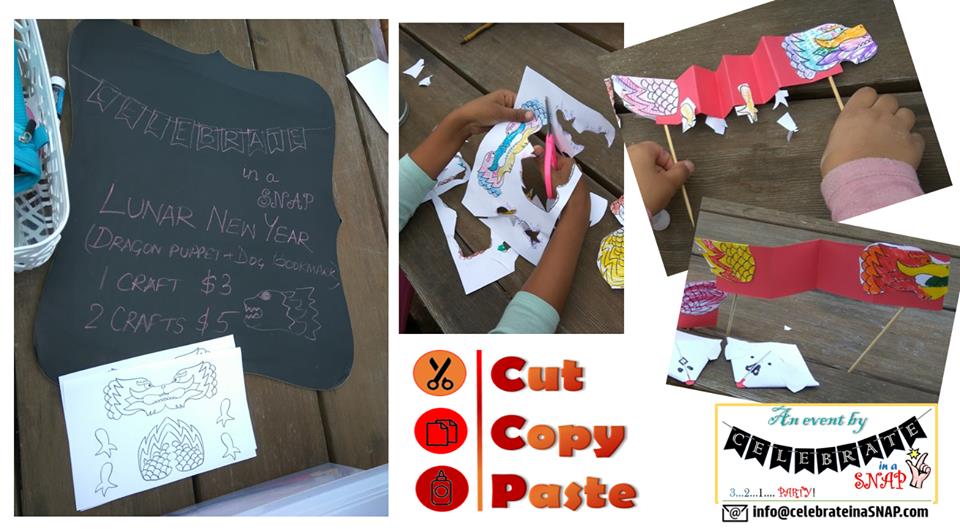 CELEBRATE
in a
SNAP
LUNAR NEW YEAR
(DRAGON PUPPET + DOG BOOKMARK)
1 CRAFT $3
2 CRAFTS $5
Cut
Copy
Paste
An event by
CELEBRATE
in a
SNAP
3...2...1.... PARTY!
info@celebrateinaSNAP.com